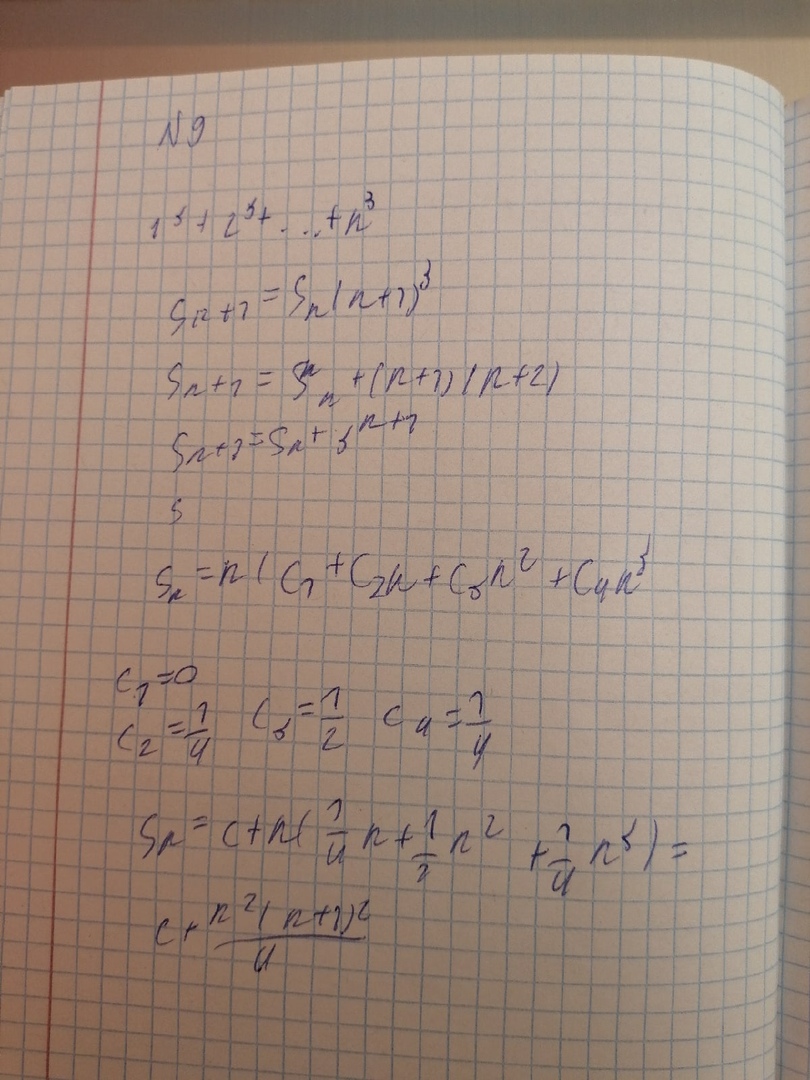 N9
1³ + 2³ + ... + n³
Sₙ₊₁ = Sₙ(n+1)³
Sₙ₊₁ = Sₙ + (n+1)(n+2)
Sₙ₊₁ = Sₙ + 3ⁿ⁺¹
S
Sₙ = n(C₁ + C₂n + C₃n² + C₄n³
C₁ = 0
C₂ = 1/4 C₃ = 1/2 C₄ = 1/4
Sₙ = C + n(1/4 n + 1/2 n² + 1/4 n³) =
C + n²(n+1)²/4